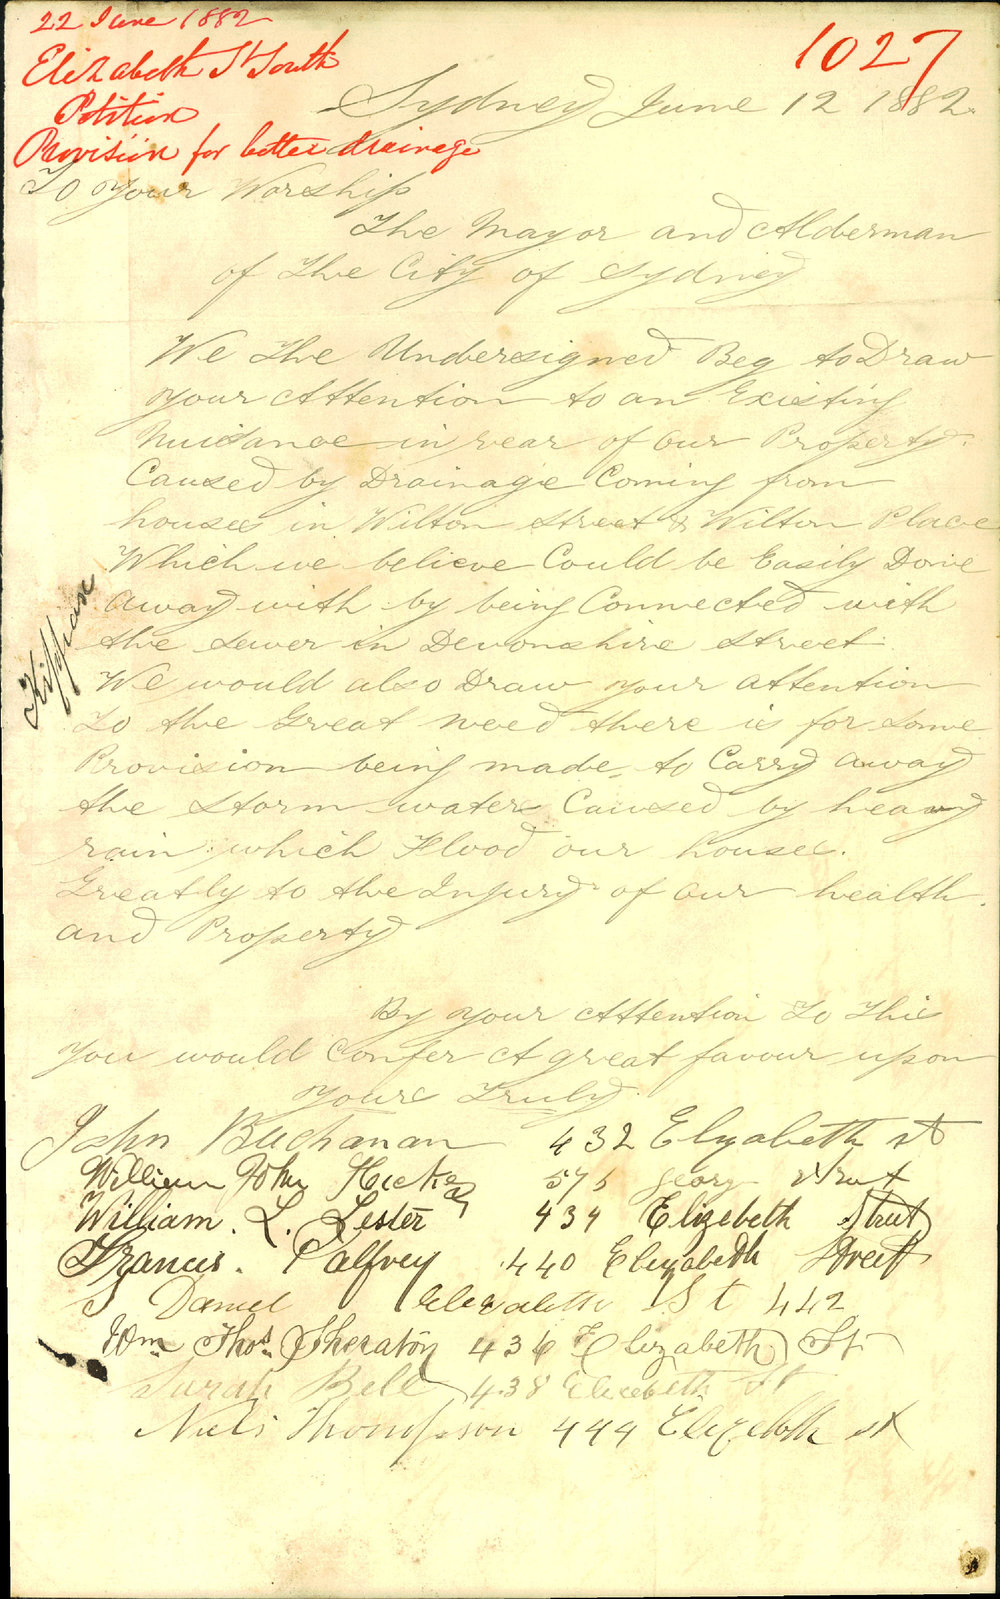 22 June 1882
1027
Elizabeth St South
Petition
Provision for better drainage
Sydney June 12 1882
To Your Worship
The Mayor and Alderman
of the City of Sydney
We the Undersigned Beg to Draw
your Attention to an Existing
Nuisance in rear of our Property.
Caused by Drainage Coming from
houses in Wilton Street & Wilton Place
Which we believe Could be Easily Done
Away with by being Connected with
the Sewer in Devonshire Street.
We would also Draw your Attention
To the Great need there is for Some
Provision being made to Carry away
the Storm waters Caused by heavy
rain which Flood our houses.
Greatly to the Injury of our health.
and Property
Kippax
By your Attention To This
You would Confer A great favour upon
Yours Truly
John Buchanan 432 Elyabeth st
William John 575 George Street
William. L. Lester 434 Elizebeth Street
Francis. Palfrey 440 Elezabeth Street
J Daniel St 442
Wm Thos. Sheraton 436 Elizabeth St
Sarah Bell 438 Elicebeth St
Niels Thompson 444 Elizeboth st